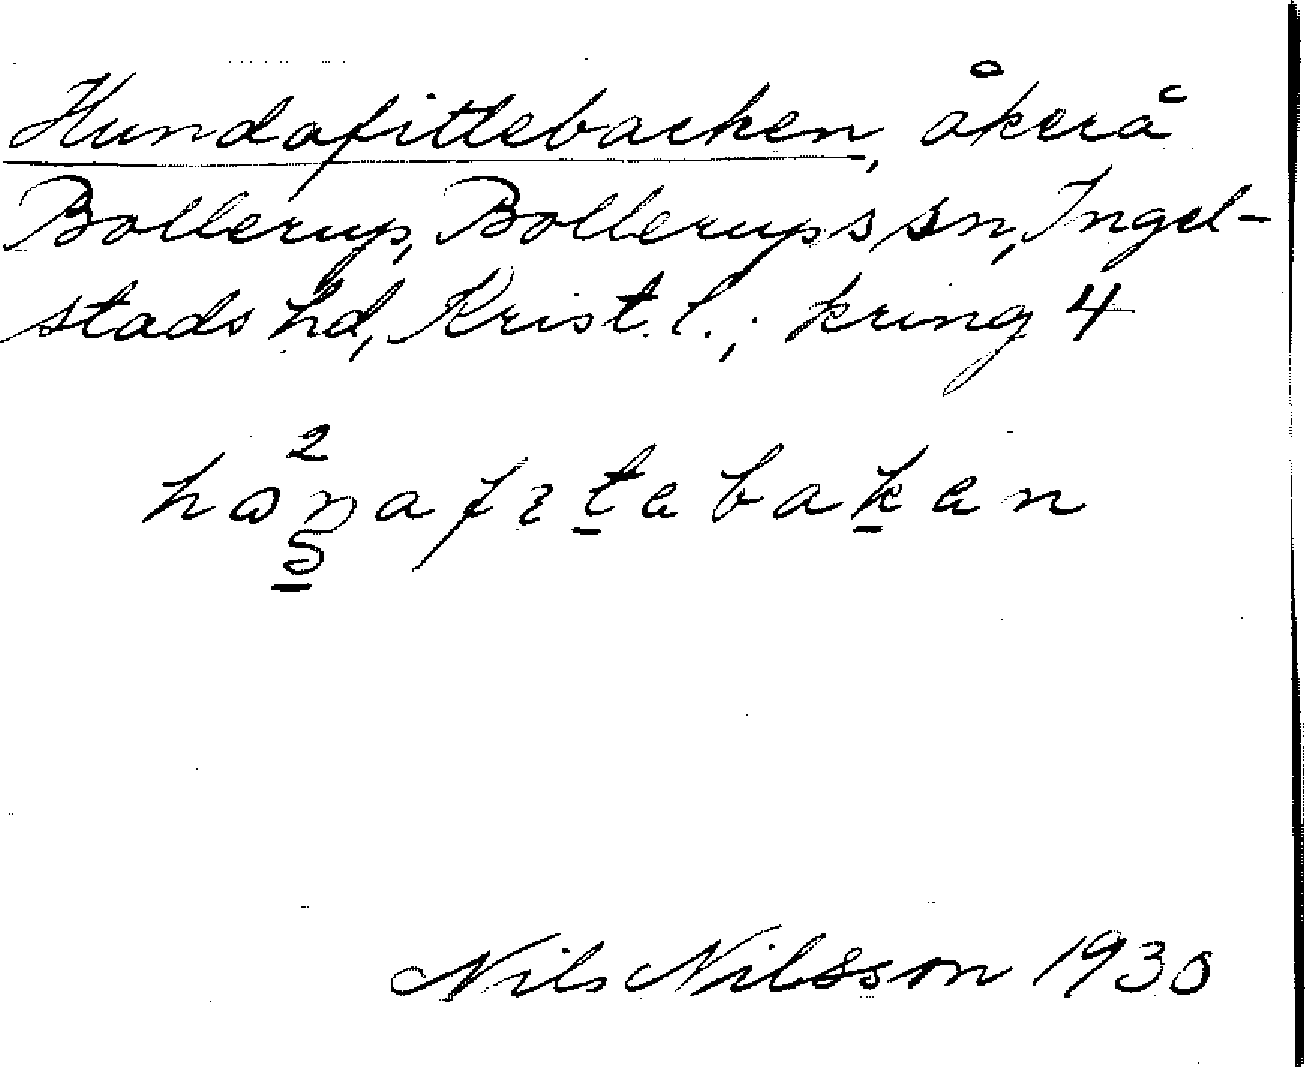 Hundafittebacken, åker å
Bollerup, Bollerups sn, Ingel-
stads hd, Krist. l.; kring 4
Nils Nilsson 1930